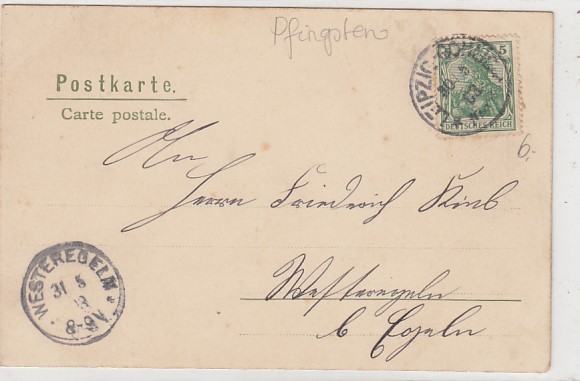 Pfingsten
Postkarte.
Carte postale.
LEIPZIG
5
DEUTSCHES REICH
6.-
An
Herrn Friedrich
Westeregeln
b Egeln
WESTEREGELN
31 5
8-9V.